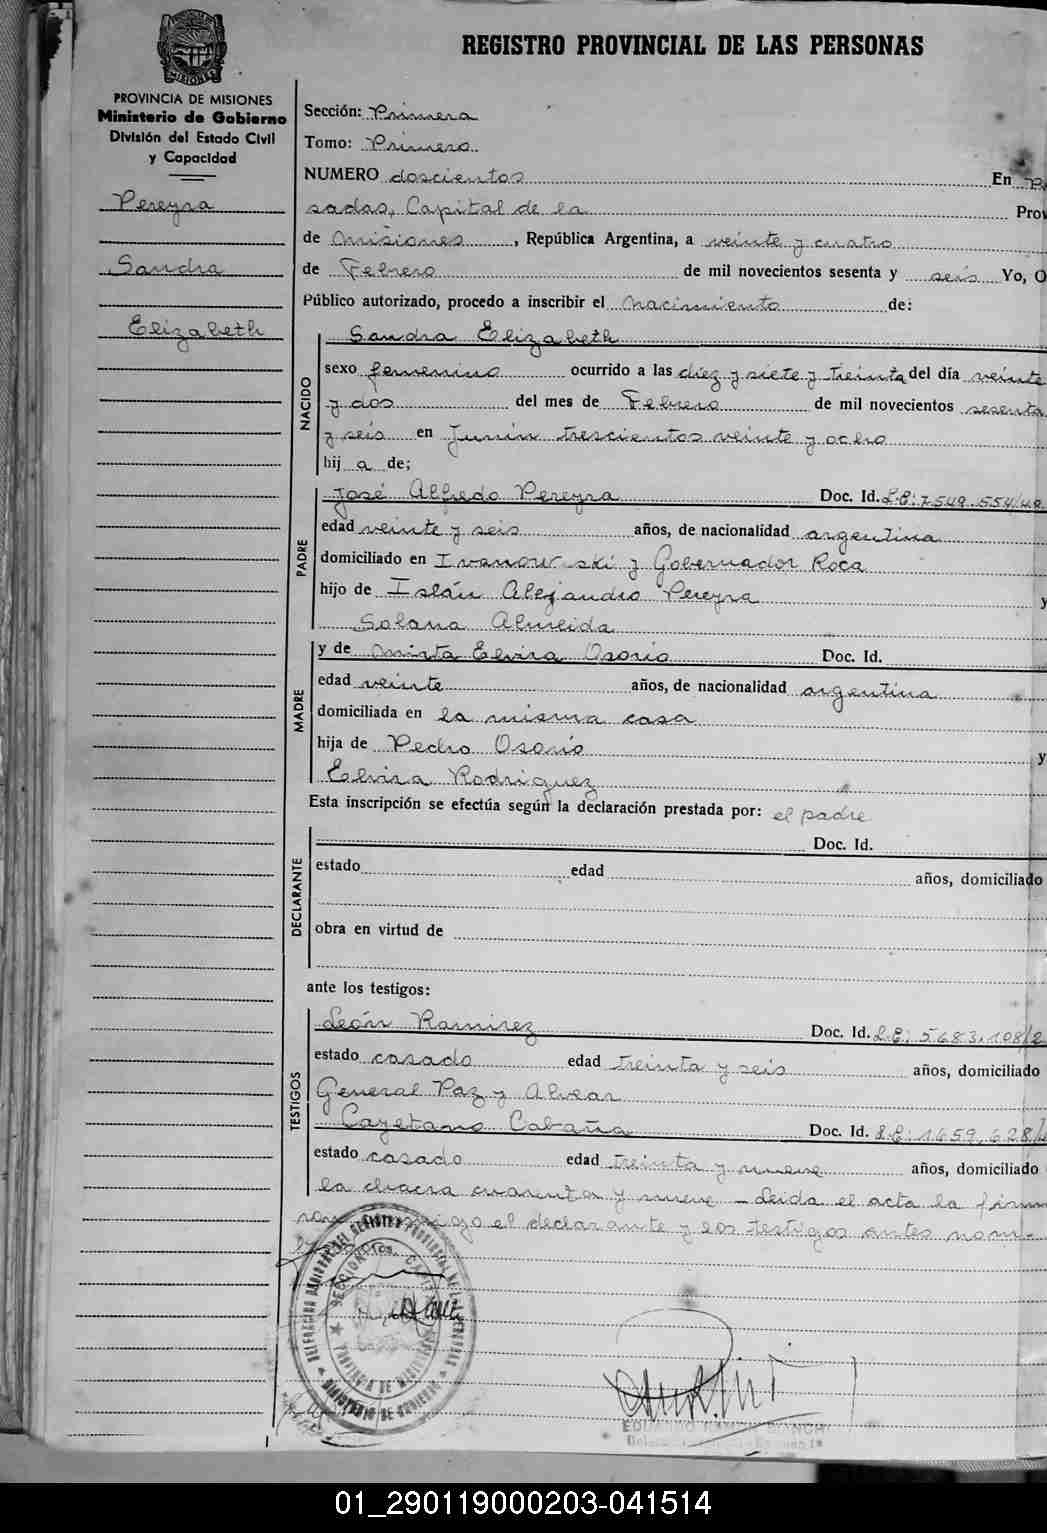 REGISTRO PROVINCIAL DE LAS PERSONAS
MISIONES
PROVINCIA DE MISIONES
Ministerio de Gobierno
División del Estado Civil
y Capacidad
Pereyra
Sandra
Elizabeth
Sección: Primera
Tomo: Primero
NUMERO doscientos En Po
sadas, Capital de la Prov
de Misiones, República Argentina, a veinte y cuatro
de Febrero de mil novecientos sesenta y seis Yo, O
Público autorizado, procedo a inscribir el nacimiento de:
NACIDO
Sandra Elizabeth
sexo femenino ocurrido a las diez y siete y treinta del día veinte
y dos del mes de Febrero de mil novecientos sesenta
y seis en Junín trescientos veinte y ocho
hij a de;
PADRE
José Alfredo Pereyra Doc. Id. L.E: 7549.554/49
edad veinte y seis años, de nacionalidad argentina
domiciliado en Ivanowski y Gobernador Roca
hijo de Islán Alejandro Pereyra y
Solana Almeida
MADRE
y de Mirta Elvira Osorio Doc. Id.
edad veinte años, de nacionalidad argentina
domiciliada en la misma casa
hija de Pedro Osorio y
Elvira Rodriguez
Esta inscripción se efectúa según la declaración prestada por: el padre
DECLARANTE
Doc. Id.
estado edad años, domiciliado
obra en virtud de
ante los testigos:
TESTIGOS
León Ramirez Doc. Id. L.E: 5683.108/2
estado casado edad treinta y seis años, domiciliado
General Paz y Alvear
Cayetano Cabaña Doc. Id. L.E: 1659.628/
estado casado edad treinta y nueve años, domiciliado
la chacra cuarenta y nueve - Leida el acta la firma
ron el declarante y los testigos antes nom-
PROVINCIA DE MISIONES
MINISTERIO DE GOBIERNO
01_290119000203-041514